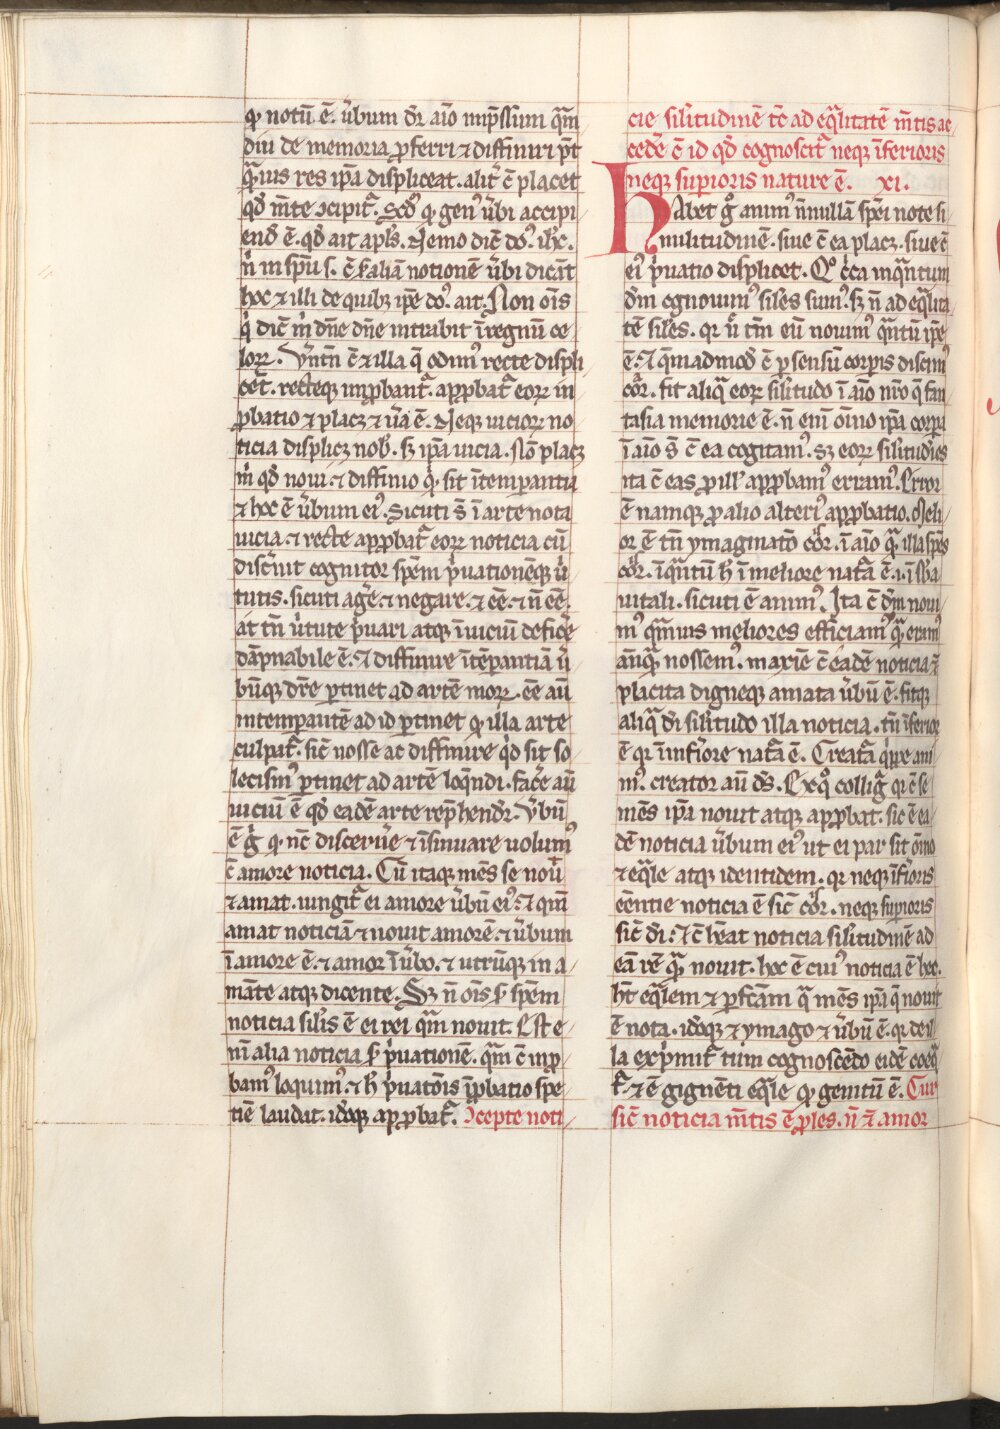 q̇ notū ē. v̄bum dr̄ aīo īmp̄ssum qm̄
diu de memoria ꝓferri ⁊ diffiniri pn̄t
q̄uis res ip̄a displiceat. alit̄ c̄ placet
qd̄ m̄te ꝯcipit̄. Scd̄o q̇ gen̄ v̄bi accipi
end̄ ē. qd̄ ait apl̄s. Nemo dic̄ dn̄s ih̄c.
n̄ in sp̄u s̄. c̄ ẜ aliā notionē v̄bi dicāt
hoc ⁊ illi de quibꝫ ip̄e dn̄s ait. Non oīs
q̇ dic̄ m̄ dn̄e dn̄e intrabit ī regnū ce
loꝝ. Vnt̄n c̄ ⁊ illa q̄ odim⁹ recte displi
cēt. recteqꝫ inꝓbant̄. apꝓbat̄ eoꝝ in
ꝓbatio ⁊ placꝫ ⁊ v̄a ē. Neqꝫ uicioꝝ no
ticia displicꝫ nob̄. sꝫ ip̄a uicia. Nō placꝫ
m̄ qd̄ noui ⁊ diffinio q̇ sit ītemꝑantia
⁊ hoc ē v̄bum ei⁹. Sicuti s̄ ī arte nota
uicia. ⁊ recte apꝓbat̄ eoꝝ noticia cū
disc̄nit cognitor sp̄em p̄uationēqꝫ v̄
tutis. sicuti aḡe ⁊ negare. ⁊ eē. ⁊ n̄ eē.
at tn̄ v̄tute p̄uari atqꝫ ī uiciū defic̄e
dāpnabile ē. ⁊ diffinire ītēꝑantiā v̄
būqꝫ dr̄e ꝑtinet ad artē moꝝ. eē aū
intemꝑantē ad id ꝑtinet q̇ illa arte
culpat̄. sic̄ nosse ac diffinire qd̄ sit so
lecism⁹ ꝑtinet ad artē loq̄ndi. fac̄e aū
uiciū ē qd̄ eadē arte rep̄hendr̄. V̄bū
ē ḡ q̇ nc̄ disc̄ne ⁊ īsinuare uolum⁹
c̄ amore noticia. Cū itaqꝫ mēs se nou̇
⁊ amat. iungit̄ ei amore v̄bū ei⁹. ⁊ qm̄
amat noticiā ⁊ nouit amorē. ⁊ v̄bum
ī amore ē. ⁊ amor ī v̄bo. ⁊ utrūqꝫ in a
māte atqꝫ dicente. Sꝫ n̄ oīs ẜ sp̄em
noticia sil̄is ē ei rei qm̄ nouit. Est e
nī alia noticia ẜ p̄uationē. qm̄ c̄ inꝓ
bam⁹ loquim⁹. ⁊ h̄ p̄uatōis īꝓbatio spe
tiē laudat. iđoqꝫ apꝓbat̄. Ꝯcepte noti
cie sil̄itudinē tc̄ ad eq̄litatē m̄tis ac
ced̄e c̄ id qd̄ cognoscit̄ neqꝫ īferioris
neqꝫ suꝑioris nature ē. XI.
HAbet ḡ anim⁹ n̄nullā sp̄ei note si
militudinē. siue c̄ ea placꝫ. siue c̄
ei⁹ p̄uatio displicet. Qo c̄ca inq̄ntum
dm̄ cgnouim⁹ siles sum⁹. sꝫ n̄ ad eq̄lita
tē siles. qr̄ n̄ tm̄ eū nouim⁹ q̄ntū ip̄e
ē. ⁊ q̄madmod̄ c̄ ꝑ sensū corꝑis discim⁹
cor̄. fit aliq̄ eoꝝ sil̄itudo ī aīo nr̄o q̄ fan
tasia memorie ē. n̄ enī oīno ip̄a corꝑa
ī aīo s̄ c̄ ea cogitam⁹. sꝫ eoꝝ sil̄itudīes
ita c̄ eas ꝓ ill̄ apꝓbam⁹ erram⁹. Error
ē namqꝫ ꝓ alio alteri⁹ apꝓbatio. Meli
or ē tn̄ ymaginatō cor̄. ī aīo q̄ illa sp̄es
cor̄. ī q̄ntū h̄ ī meliore nat̄a ē. i. ī sb̄a
uitali. sicuti ē anim⁹. Ita c̄ dm̄ noui
m⁹ qm̄uis meliores efficiam⁹ q̄ eram⁹
anq̄ nossem⁹. maxīe c̄ eadē noticia ⁊
placita digneqꝫ amata v̄bū ē. fitqꝫ
aliq̄ di̅ sil̄itudo illa noticia. tn̄ īferior
ē qr̄ ī inf̄iore nat̄a ē. Creat̄a q̇ppe ani
m⁹. creator aū ds̄. Exqo colliḡ qr̄ c̄ se
mēs ip̄a nouit atqꝫ apꝓbat. sic ē ea
dē noticia v̄bum ei⁹ ut ei par sit oīno
⁊ eq̄le atqꝫ identidem. qr̄ neqꝫ īf̄ioris
ēentie noticia ē sic̄ cor̄. neqꝫ suꝑioris
sic̄ di̅. ⁊ c̄ h̄eat noticia sil̄itudinē ad
eā rē q̄ nouit. hoc ē cui⁹ noticia ē hec.
ht̄ eq̄lem ⁊ ꝑfc̄am q̄ mēs ip̄a q̄ nouit
ē nota. iđoqꝫ ⁊ ymago ⁊ v̄bū ē. qr̄ de il
la exp̄mit̄ cum cognoscēdo eidē coeq̄
t̄. ⁊ ē gignēti eq̄le q̇ genitū ē. Cur
sic̄ noticia m̄tis ē ꝓles. n̄ ⁊ amor